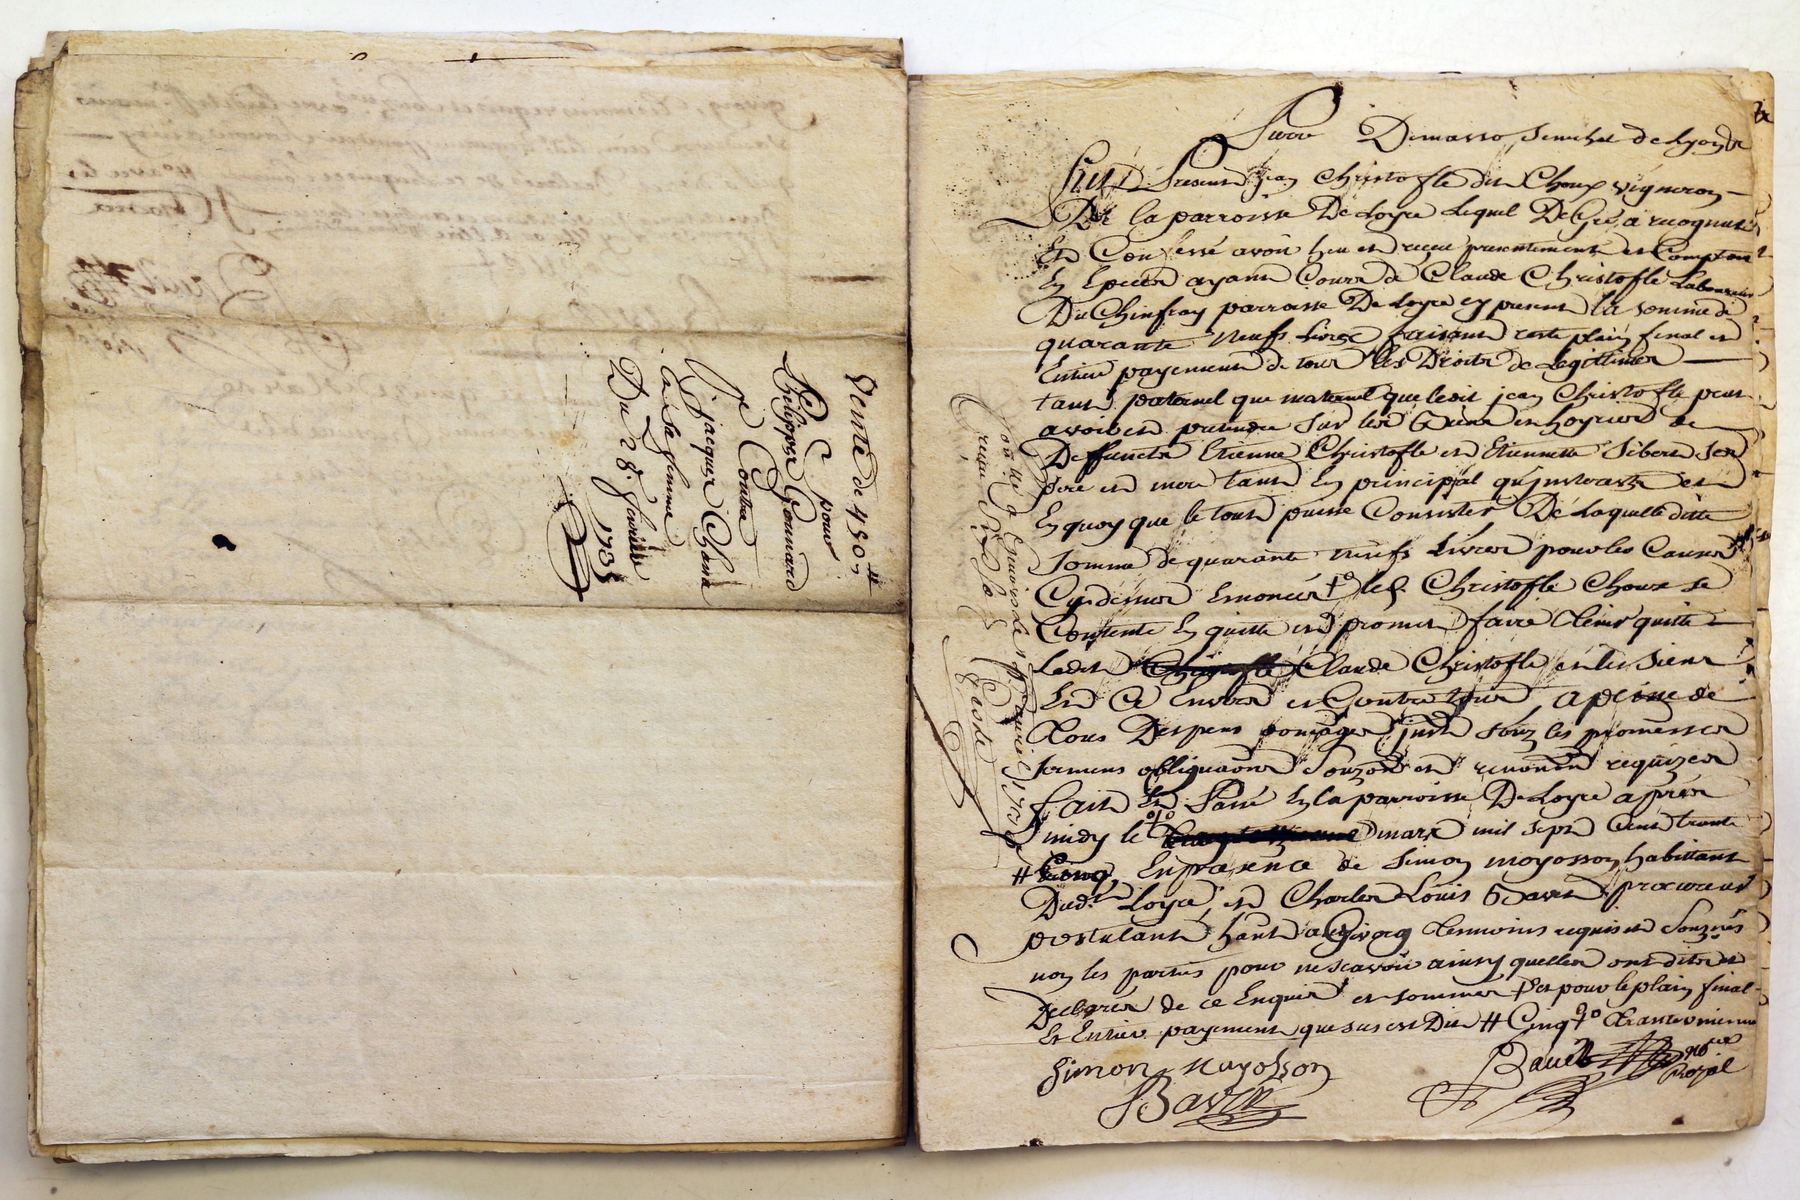 Vente de 450 ₶
pour
Philippe Gonnard
Contre
jacques Chana
et sa femme
Du 28e. fevrier
1735
Pierre Demasso Senechal de Lyon
Fut Present jean Christofle dit Choux vigneron
De la parroisse De Loyre Lequel De Gré a recognu
Et Confessé avoir heu et reçeu presentement et Comptant
En Especes ayant Cours de Claude Christofle Laboureur
Du Chinfray parroisse De Loyre cy present la somme de
quarante neufs Livres faisant reste plain final et
Entier payement de tous les Droits de Legittimes
tant paternel que maternel que ledit jean Christofle peut
avoir et pretendre sur les Biens et hoyries de
Deffuncts Etienne Christofle et Etiennette Sibert ses
pere et mere tant En principal qu'interests et
En quoy que le tout puisse Consister De Laquelle ditte
somme de quarante neufs Livres pour les Causes
Cy dessus Enoncées led. Christofle Choux se
Contente En quitte et promet faire tenir quitte
Ledit Claude Christofle et les siens
Et Ce Envers et Contre tous a peine de
tous Despens domages sous les promesses
sermens obligaons requises
fait Et Passé En la parroisse De Loyre apres
midy le mars mil sept Cent trente
# Cinq, En presence de Simon mayosson habittant
Dud. Loyre, et Charles Louis Bavet procureur
postulant habt. a Givors temoins requis et Soubznés
non les parties pour ne scavoir ainsy quelles ont dit et
Declarer de ce Enquis et sommés et pour le plain final
Et Entier payement que sus est Dit # Cinq trante unieme
Simon mayosson
Bavet
Bavet nore.
Royal